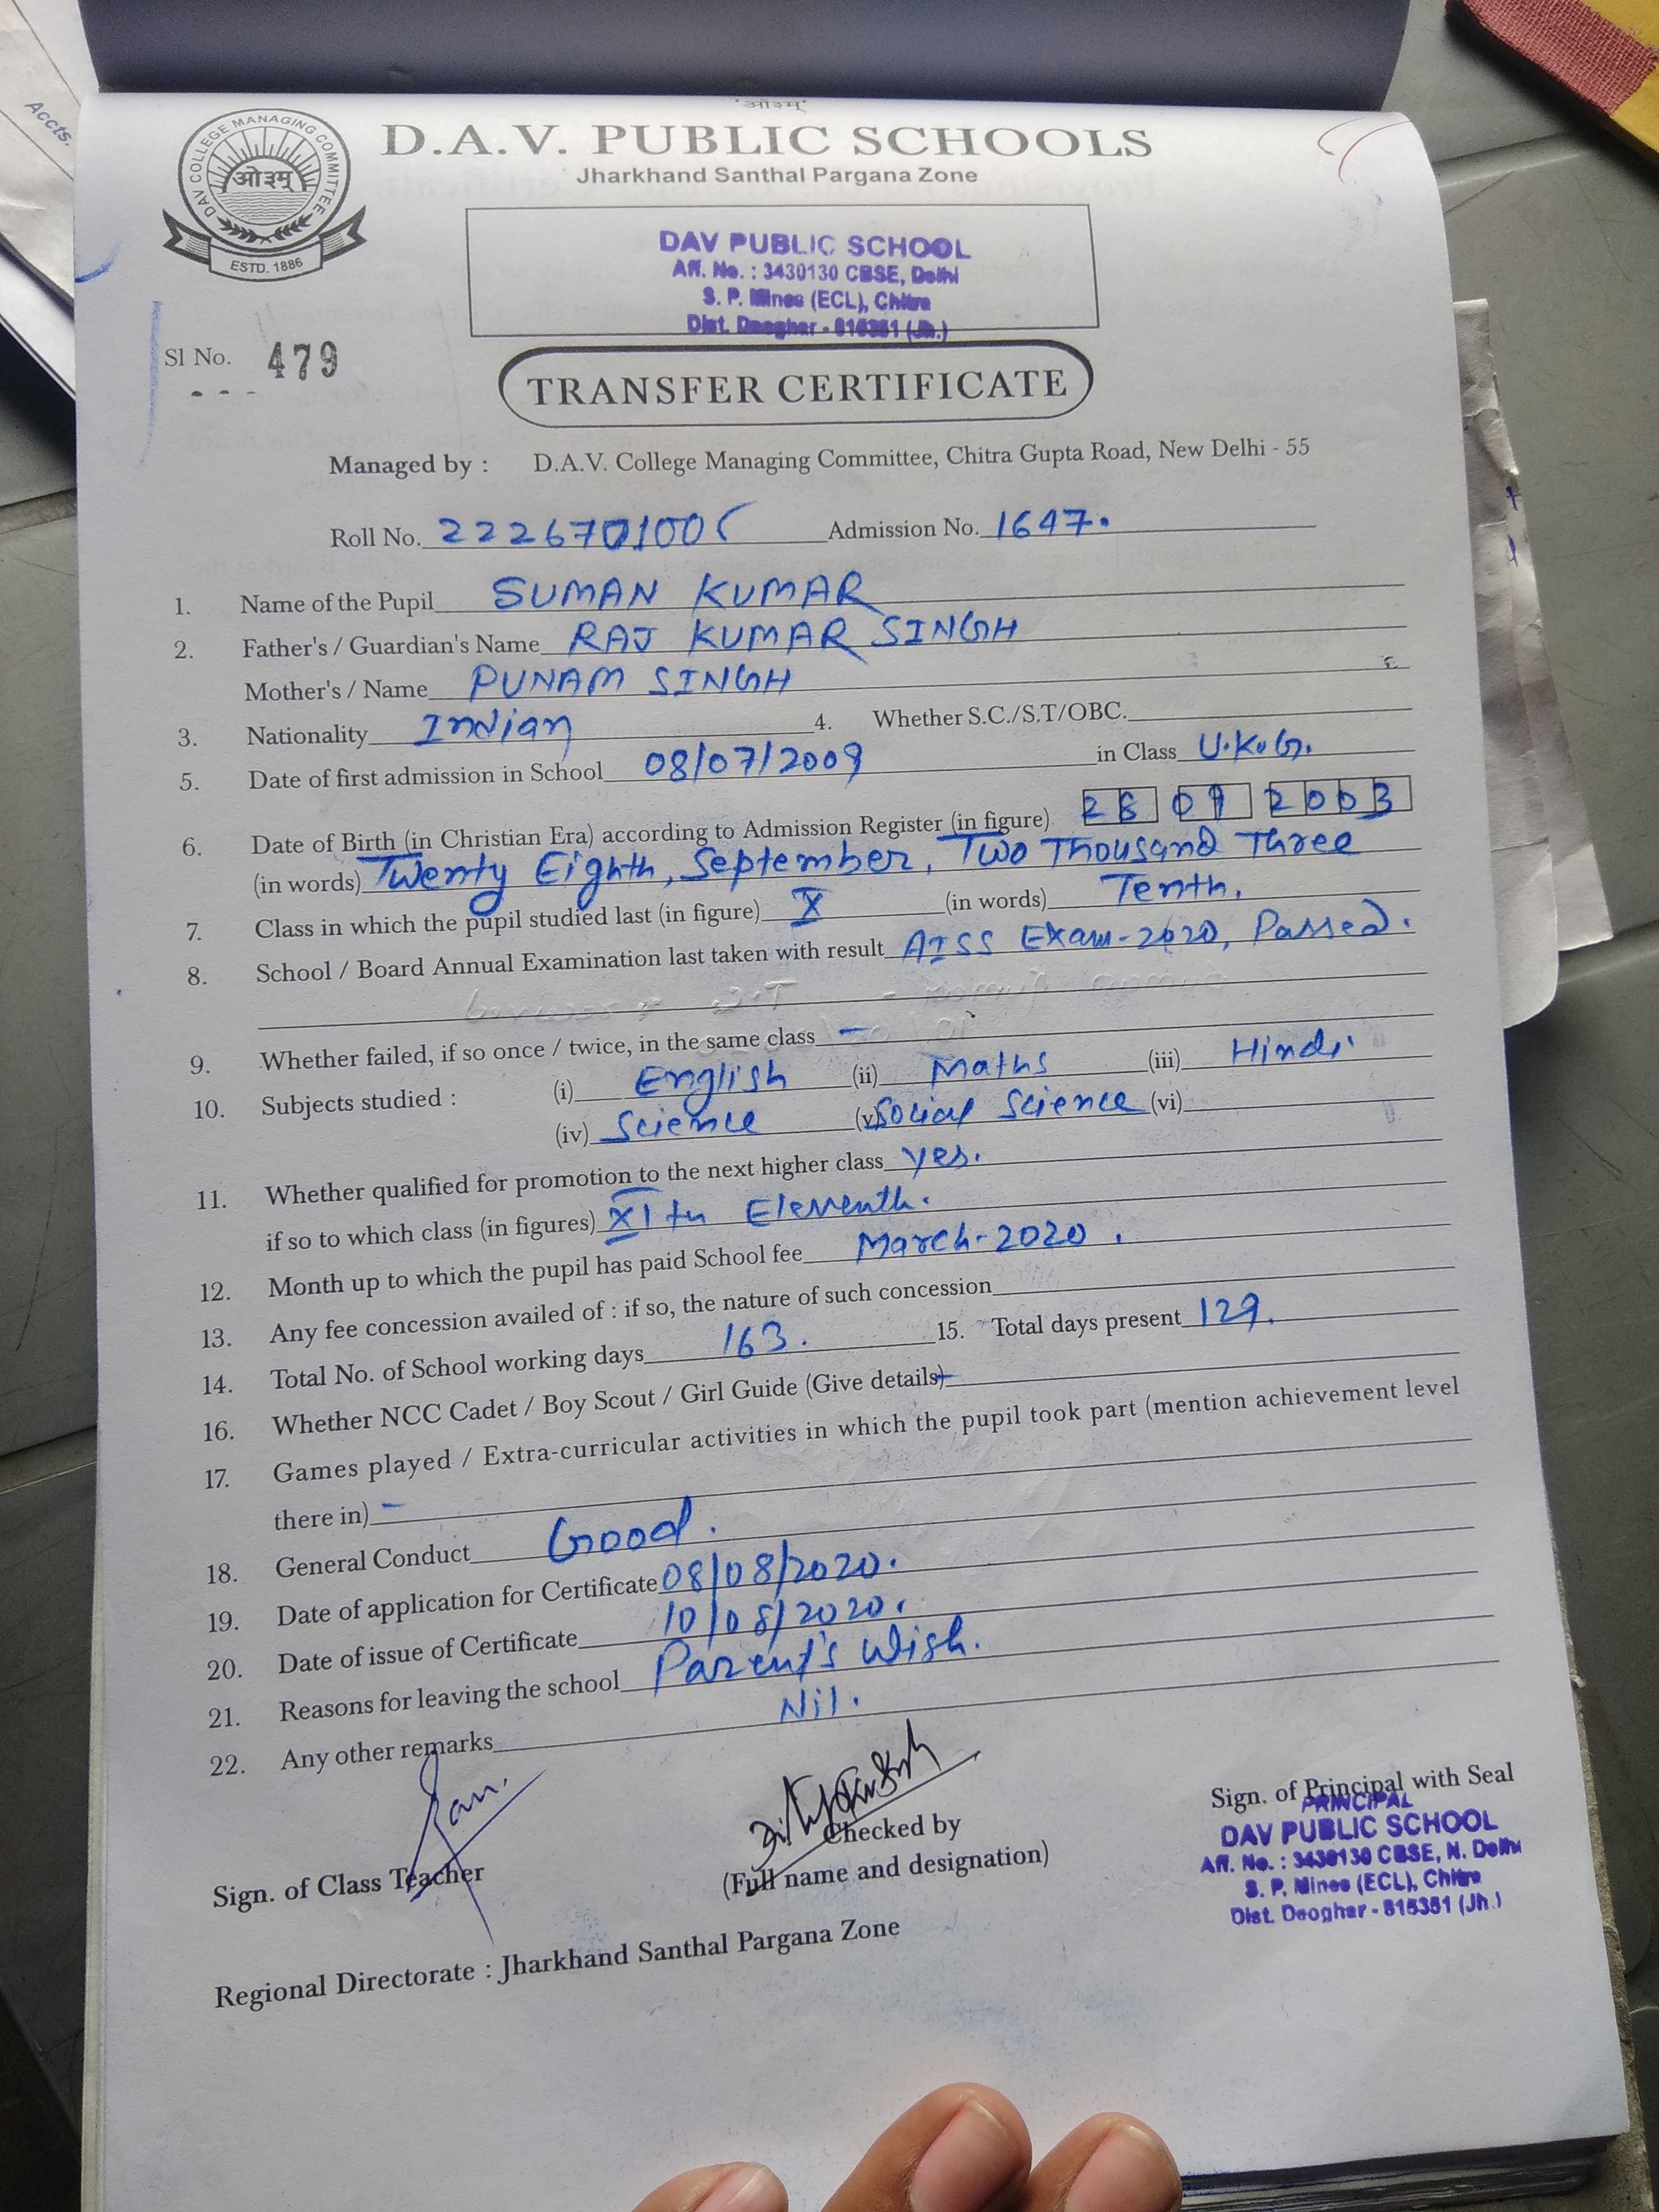 Accts.
'ओ३म्'
DAV COLLEGE MANAGING COMMITTEE
ओ३म्
ESTD. 1886
D.A.V. PUBLIC SCHOOLS
Jharkhand Santhal Pargana Zone
DAV PUBLIC SCHOOL
Aff. No. : 3430130 CBSE, Delhi
S. P. Mines (ECL), Chitra
Dist. Deoghar - 815351 (Jh.)
Sl No. 479
TRANSFER CERTIFICATE
Managed by : D.A.V. College Managing Committee, Chitra Gupta Road, New Delhi - 55
Roll No. 2226701005 Admission No. 1647.
1. Name of the Pupil SUMAN KUMAR
2. Father's / Guardian's Name RAJ KUMAR SINGH
Mother's / Name PUNAM SINGH
3. Nationality Indian 4. Whether S.C./S.T/OBC.
5. Date of first admission in School 08/07/2009 in Class U.K.G.
6. Date of Birth (in Christian Era) according to Admission Register (in figure) 28 09 2003
(in words) Twenty Eighth, September, Two Thousand Three
7. Class in which the pupil studied last (in figure) X (in words) Tenth.
8. School / Board Annual Examination last taken with result AISS Exam-2020, Passed.
9. Whether failed, if so once / twice, in the same class -
10. Subjects studied : (i) English (ii) Maths (iii) Hindi
(iv) Science (v) Social Science (vi)
11. Whether qualified for promotion to the next higher class yes.
if so to which class (in figures) XI th Eleventh.
12. Month up to which the pupil has paid School fee March-2020.
13. Any fee concession availed of : if so, the nature of such concession
14. Total No. of School working days 163. 15. Total days present 129.
16. Whether NCC Cadet / Boy Scout / Girl Guide (Give details) -
17. Games played / Extra-curricular activities in which the pupil took part (mention achievement level
there in) -
18. General Conduct Good.
19. Date of application for Certificate 08/08/2020.
20. Date of issue of Certificate 10/08/2020.
21. Reasons for leaving the school Parent's Wish.
22. Any other remarks Nil.
Sign. of Class Teacher
Checked by
(Full name and designation)
Sign. of Principal with Seal
PRINCIPAL
DAV PUBLIC SCHOOL
Aff. No. : 3430130 CBSE, N. Delhi
S. P. Mines (ECL), Chitra
Dist. Deoghar - 815351 (Jh.)
Regional Directorate : Jharkhand Santhal Pargana Zone